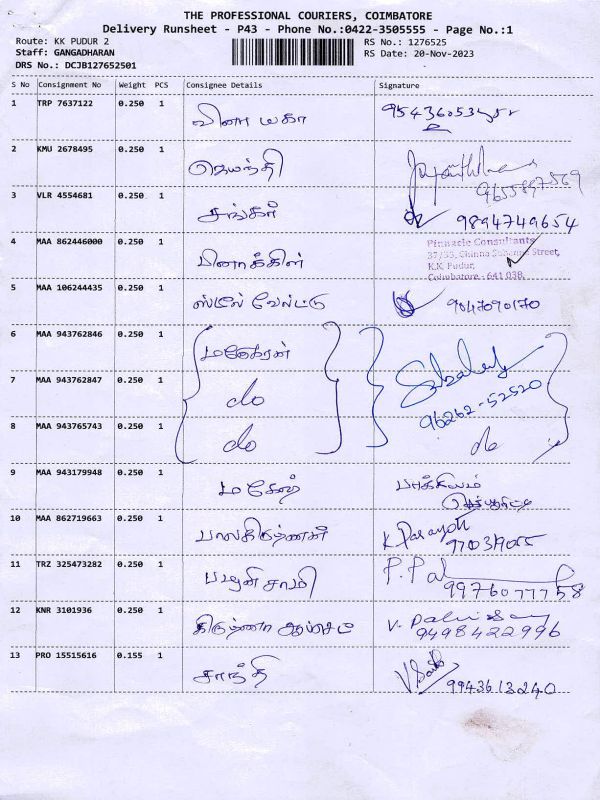 THE PROFESSIONAL COURIERS, COIMBATORE
Delivery Runsheet - P43 - Phone No.:0422-3505555 - Page No.:1
Route: KK PUDUR 2 RS No.: 1276525
Staff: GANGADHARAN RS Date: 20-Nov-2023
DRS No.: DCJB127652501
S No Consignment No Weight PCS Consignee Details Signature
1 TRP 7637122 0.250 1
2 KMU 2678495 0.250 1 ஜெயந்தி
9655897569
3 VLR 4554681 0.250 1 சங்கர் 9894749654
4 MAA 862446000 0.250 1 பினாக்கிள் Pinnacle Consultants
37/53, Chinna Street,
K.K. Pudur,
Coimbatore - 641 038.
5 MAA 106244435 0.250 1 ஸ்டீல் வேல்ட்டு 9047090170
6 MAA 943762846 0.250 1 மனோகரன்
7 MAA 943762847 0.250 1 do 96262-52520
8 MAA 943765743 0.250 1 do do
9 MAA 943179948 0.250 1 மகேஷ் பாக்கியம்
10 MAA 862719663 0.250 1 பாலகிருஷ்ணன் K.
11 TRZ 325473282 0.250 1 பழனிசாமி P. Pal
9976077758
12 KNR 3101936 0.250 1 கிருஷ்ணா V.
9498422996
13 PRO 15515616 0.155 1 சாந்தி
9943613240